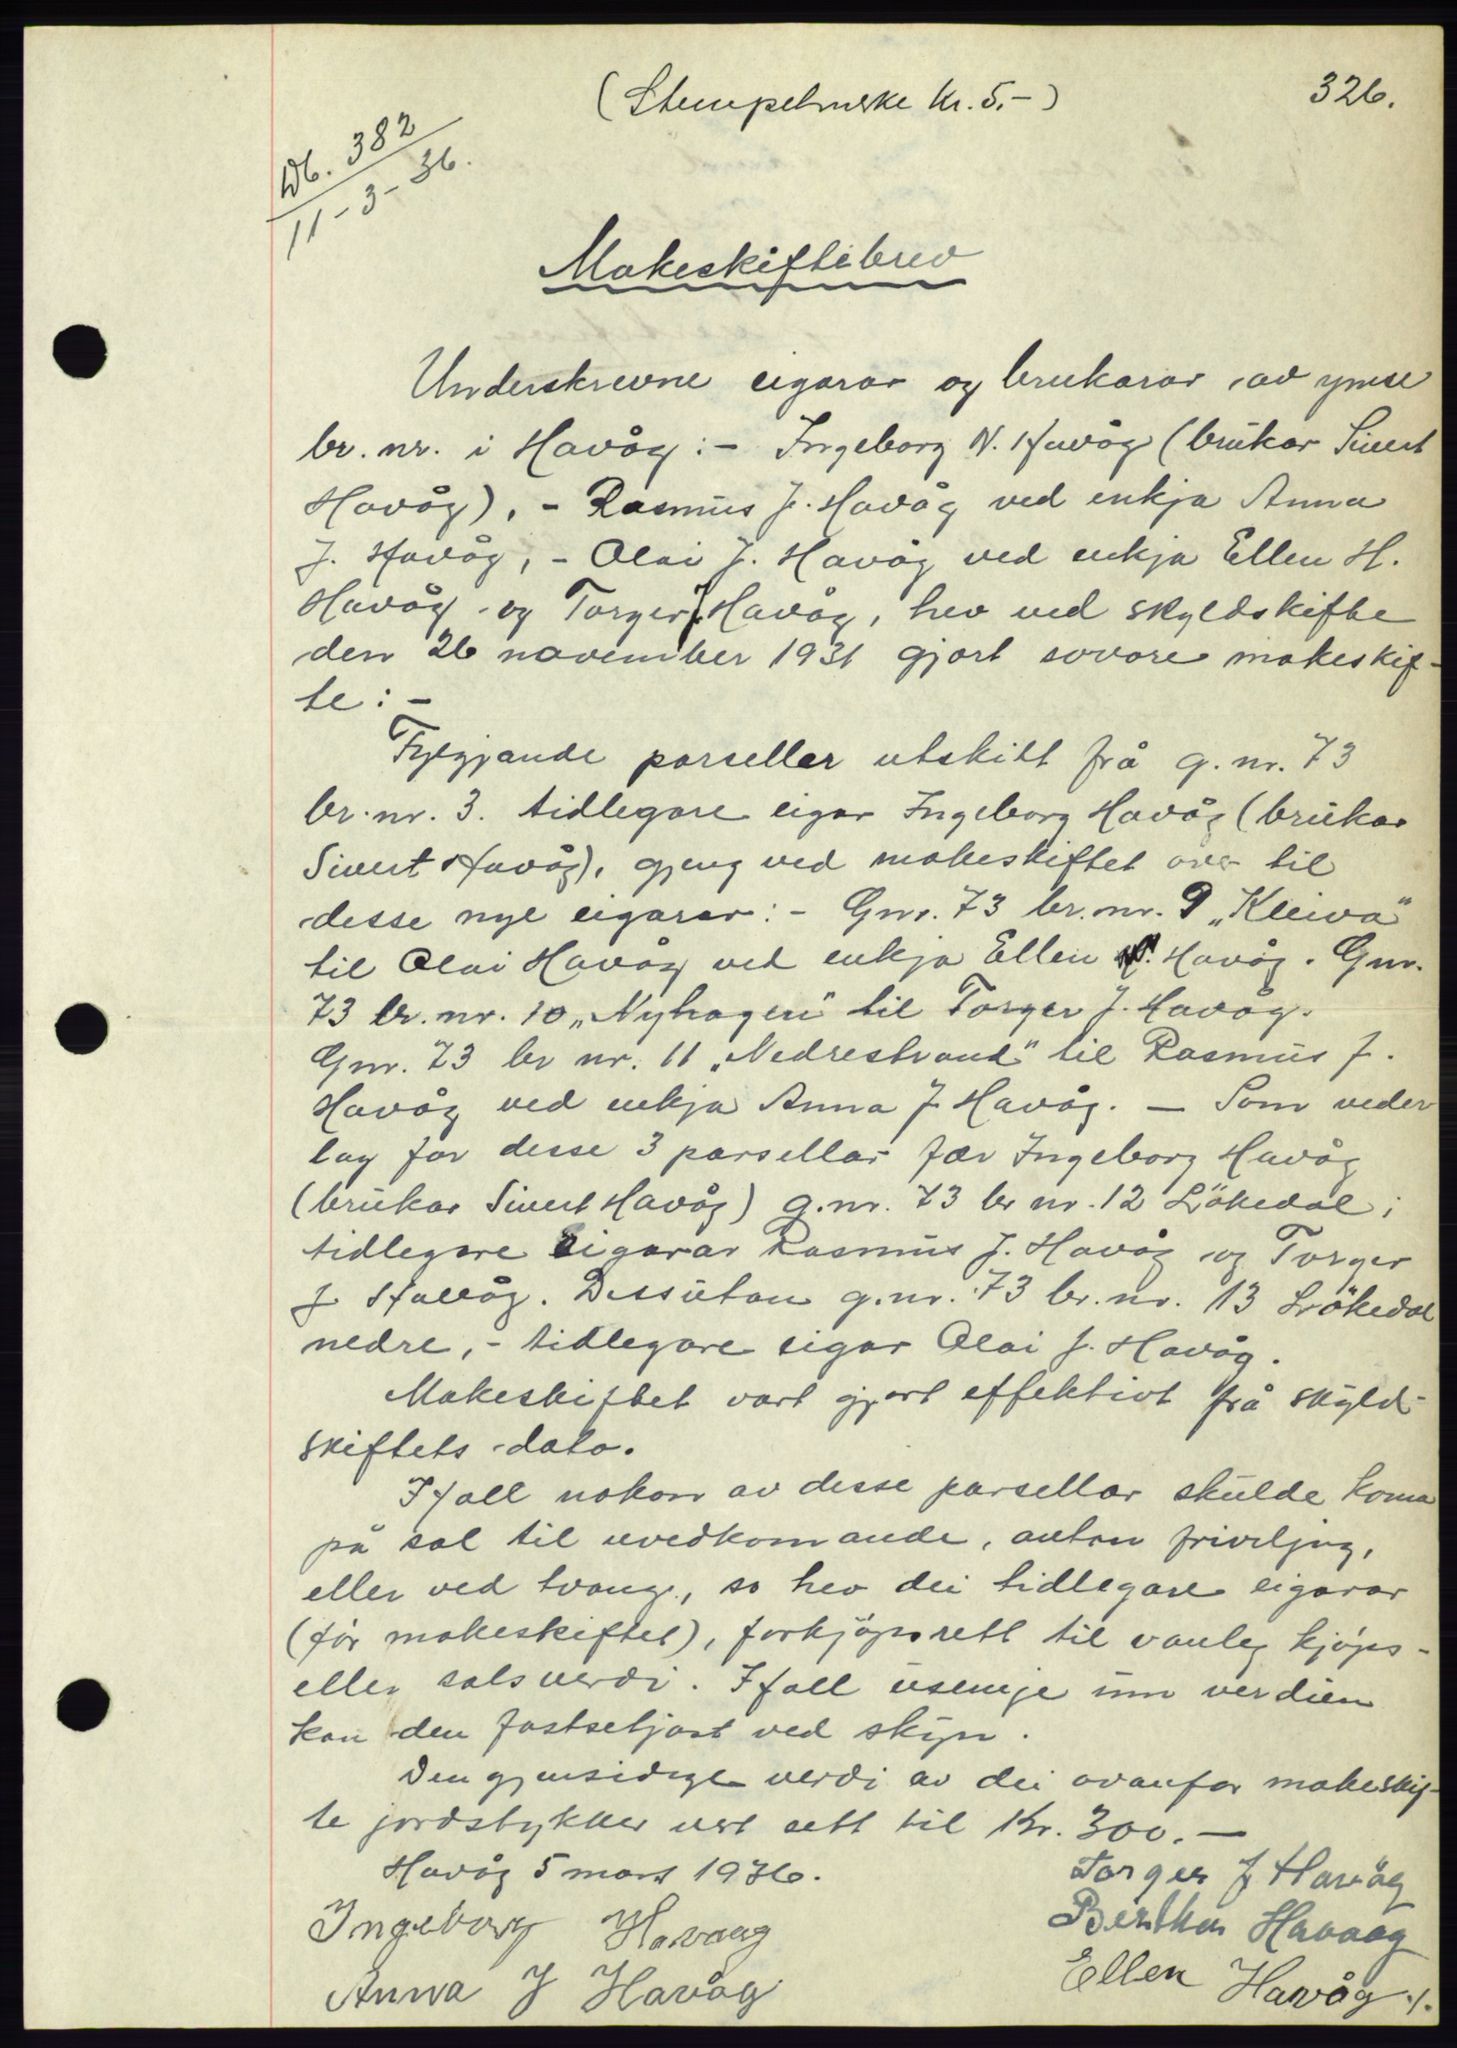 (Stempelmerke kr. 5.-)
326.
Db. 382
11-3-36.
Makeskiftebrev
Underskrevne eigarar og brukarar av ymse
br. nr. i Havåg:- Ingeborg N. Havåg (brukar Sivert
Havåg), - Rasmus J. Havåg ved enkja Anna
J. Havåg, - Olai J. Havåg ved enkja Ellen H.
Havåg og Torger J. Havåg, hev ved skyldskifte
den 26 november 1931 gjort sovore makeskif-
te: -
Fylgjande parseller utskilt frå g. nr. 73
br. nr. 3. tidlegare eigar Ingeborg Havåg (brukar
Sivert Havåg), gjeng ved makeskiftet over til
desse nye eigarar: - Gnr. 73 br. nr. 9 „Kleiva"
til Olai Havåg ved enkja Ellen H. Havåg. Gnr.
73 br. nr. 10 „Nyhagen" til Torger J. Havåg.
Gnr. 73 br nr. 11 „Nedrestrand" til Rasmus J.
Havåg ved enkja Anna J Havåg. — Som veder
lag for desse 3 parsellar fær Ingeborg Havåg
(brukar Sivert Havåg) g. nr. 73 br nr. 12 Lökedal;
tidlegare eigarar Rasmus J. Havåg og Torger
J Havåg. Dessutan g. nr. 73 br. nr. 13 Lökedal
nedre, - tidlegare eigar Olai J. Havåg.
Makeskiftet vart gjort effektivt frå skyld-
skiftets dato.
Ifall nokon av desse parsellar skulde koma
på sal til uvedkomande, anten friviljug,
eller ved tvang, so hev dei tidlegare eigarar
(før makeskiftet), forkjöpsrett til vanleg kjöps-
eller salsverdi. Ifall usemje um verdien
kan den fastsetjast ved skyn.
Den gjensidige verdi av dei ovanfor makeskif-
te jordstykker vert sett til Kr. 300.—
Havåg 5 mars 1936.
Torger J Havåg
Ingeborg Havaag
Berthe Havaag
Anna J Havåg
Ellen Havåg ./.